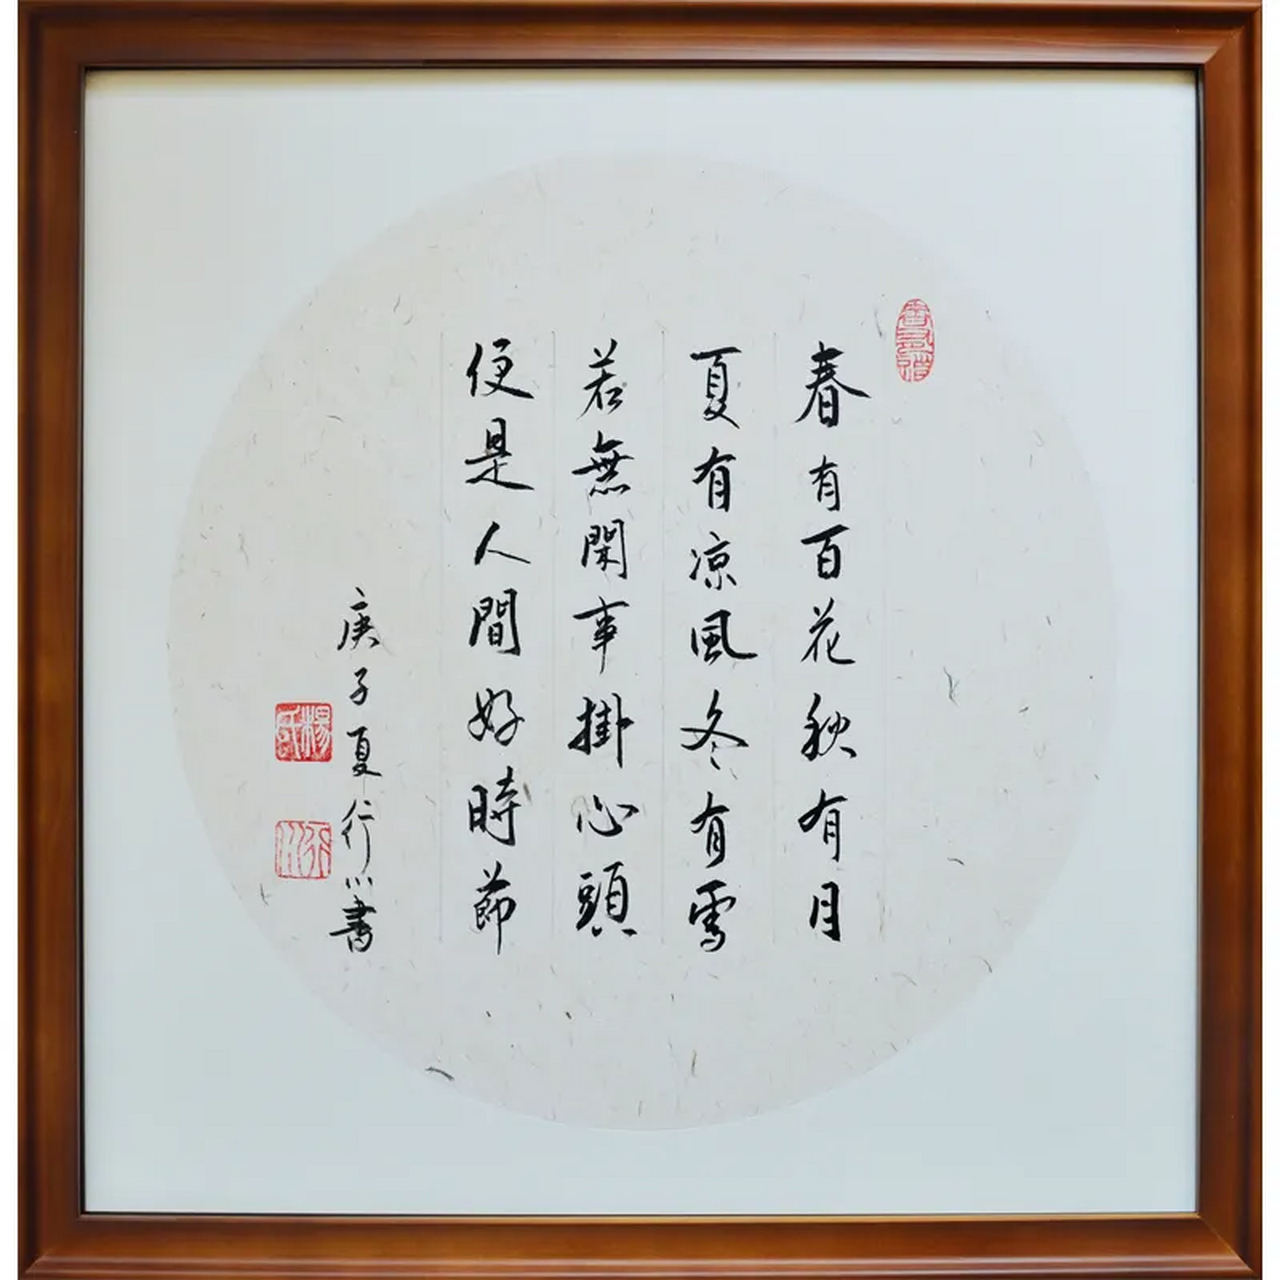 春有百花秋有月
夏有凉風冬有雪
若無閑事掛心頭
便是人間好時節
庚子夏行川書
楊氏
行川